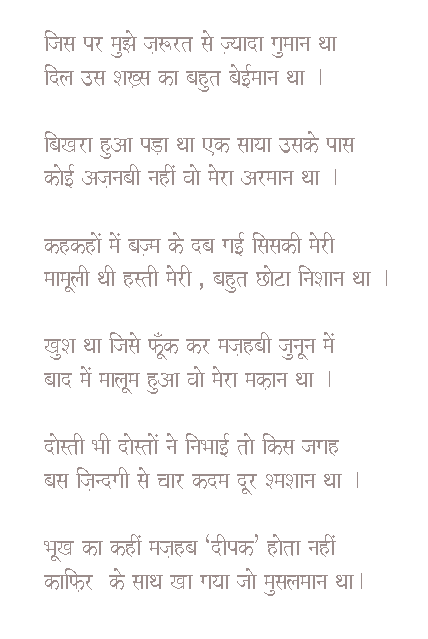 जिस पर मुझे ज़रूरत से ज़्यादा गुमान था
दिल उस शख़्स का बहुत बेईमान था |
बिखरा हुआ पड़ा था एक साया उसके पास
कोई अज़नबी नहीं वो मेरा अरमान था |
कहकहों में बज़्म के दब गई सिसकी मेरी
मामूली थी हस्ती मेरी , बहुत छोटा निशान था |
खुश था जिसे फूँक कर मज़हबी जुनून में
बाद में मालूम हुआ वो मेरा मकान था |
दोस्ती भी दोस्तों ने निभाई तो किस जगह
बस ज़िन्दगी से चार कदम दूर श्मशान था |
भूख का कहीं मज़हब ‘दीपक’ होता नहीं
काफिर के साथ खा गया जो मुसलमान था|